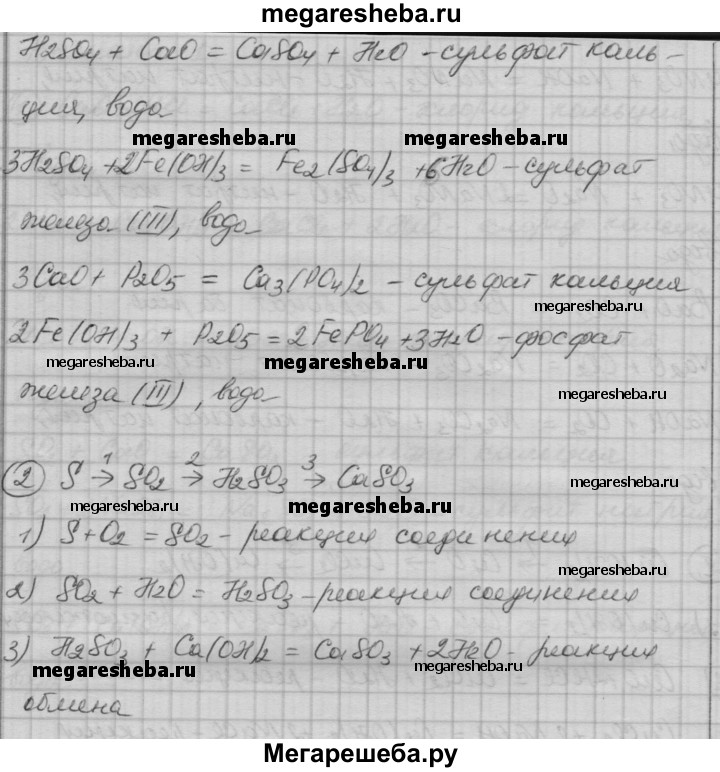 megaresheba.ru
H₂SO₄ + CaO = CaSO₄ + H₂O - сульфат каль-
megaresheba.ru
ция, вода
megaresheba.ru megaresheba.ru
3H₂SO₄ + 2Fe(OH)₃ = Fe₂(SO₄)₃ + 6H₂O - сульфат
железа (III), вода
3CaO + P₂O₅ = Ca₃(PO₄)₂ - сульфат кальция
megaresheba.ru
2Fe(OH)₃ + P₂O₅ = 2FePO₄ + 3H₂O - фосфат
megaresheba.ru megaresheba.ru
железа (III), вода
megaresheba.ru
② S →¹ SO₂ →² H₂SO₃ →³ CaSO₃
megaresheba.ru
megaresheba.ru megaresheba.ru
1) S + O₂ = SO₂ - реакция соединения
megaresheba.ru
2) SO₂ + H₂O = H₂SO₃ - реакция соединения
megaresheba.ru
3) H₂SO₃ + Ca(OH)₂ = CaSO₃ + 2H₂O - реакция
megaresheba.ru megaresheba.ru
обмена
Мегарешеба.ру